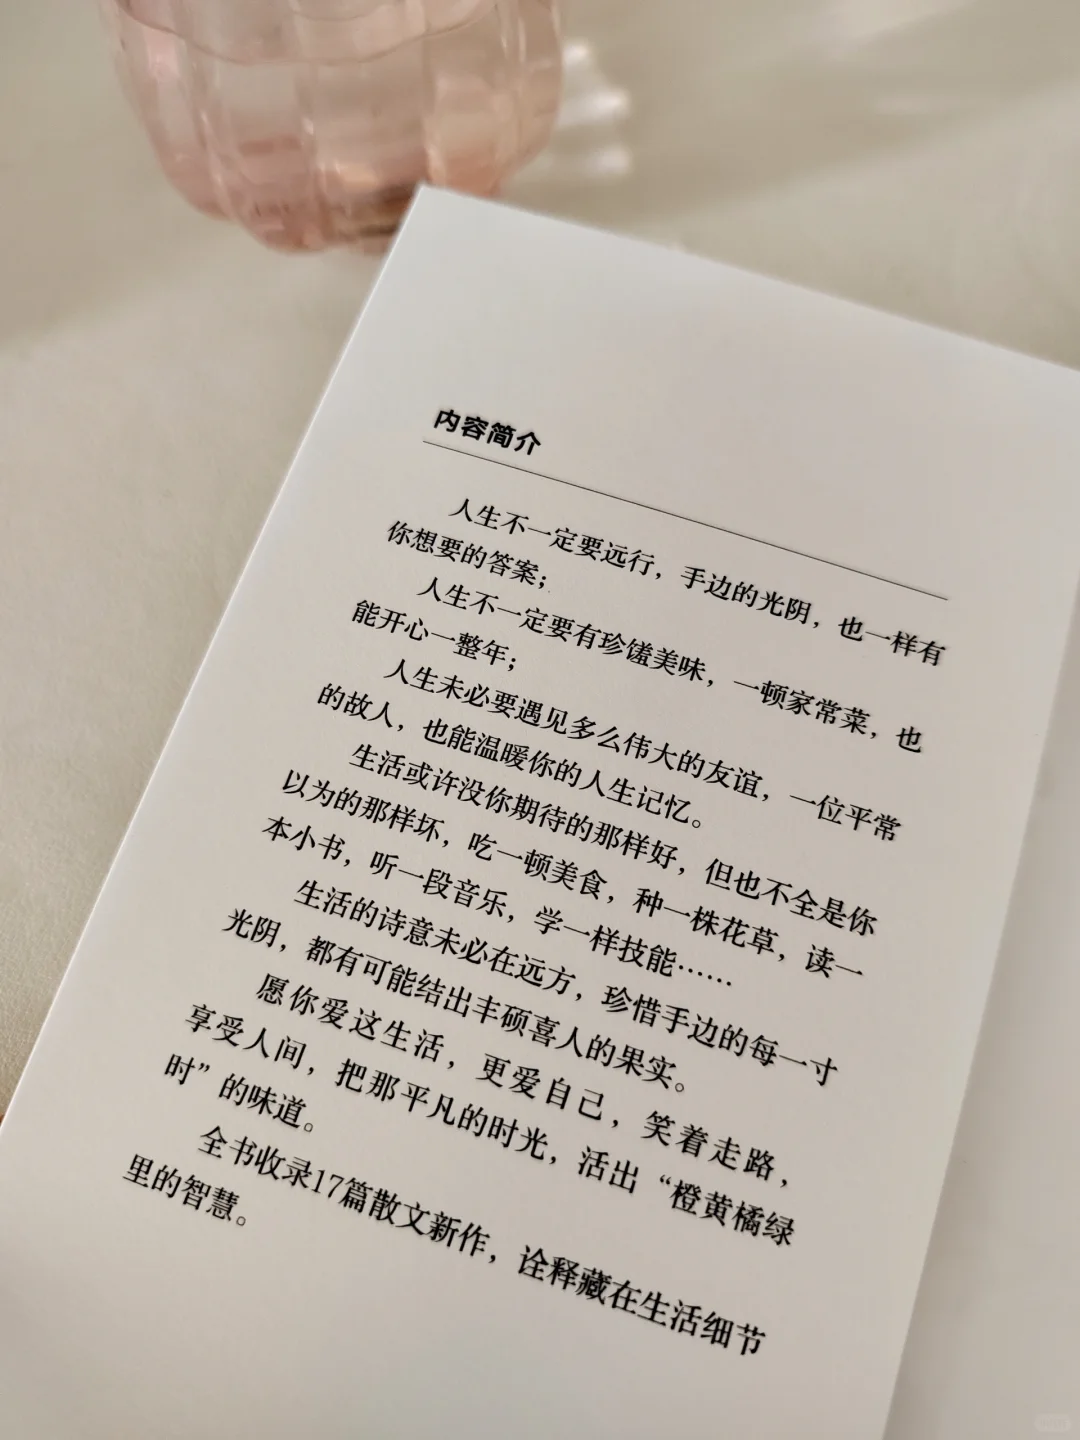 内容简介
人生不一定要远行，手边的光阴，也一样有
你想要的答案；
人生不一定要有珍馐美味，一顿家常菜，也
能开心一整年；
人生未必要遇见多么伟大的友谊，一位平常
的故人，也能温暖你的人生记忆。
生活或许没你期待的那样好，但也不全是你
以为的那样坏，吃一顿美食，种一株花草，读一
本小书，听一段音乐，学一样技能……
生活的诗意未必在远方，珍惜手边的每一寸
光阴，都有可能结出丰硕喜人的果实。
愿你爱这生活，更爱自己，笑着走路，
享受人间，把那平凡的时光，活出“橙黄橘绿
时”的味道。
全书收录17篇散文新作，诠释藏在生活细节
里的智慧。